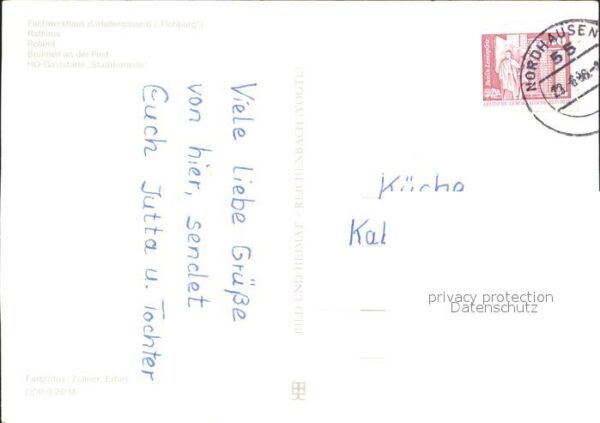 Fachwerkhaus Barfüßergasse 6 („Flohburg“)
Rathaus
Roland
Brunnen an der Post
HO-Gaststätte „Stadtterrasse“
Viele liebe Grüße
von hier, sendet
Euch Jutta u. Tochter
Farbfotos: Zöllner, Erfurt
DDR 0,20 M
BILD UND HEIMAT · REICHENBACH (VOGTL)
Berlin, Leninplatz
NORDHAUSEN
55
Küche
Kal
privacy protection
Datenschutz